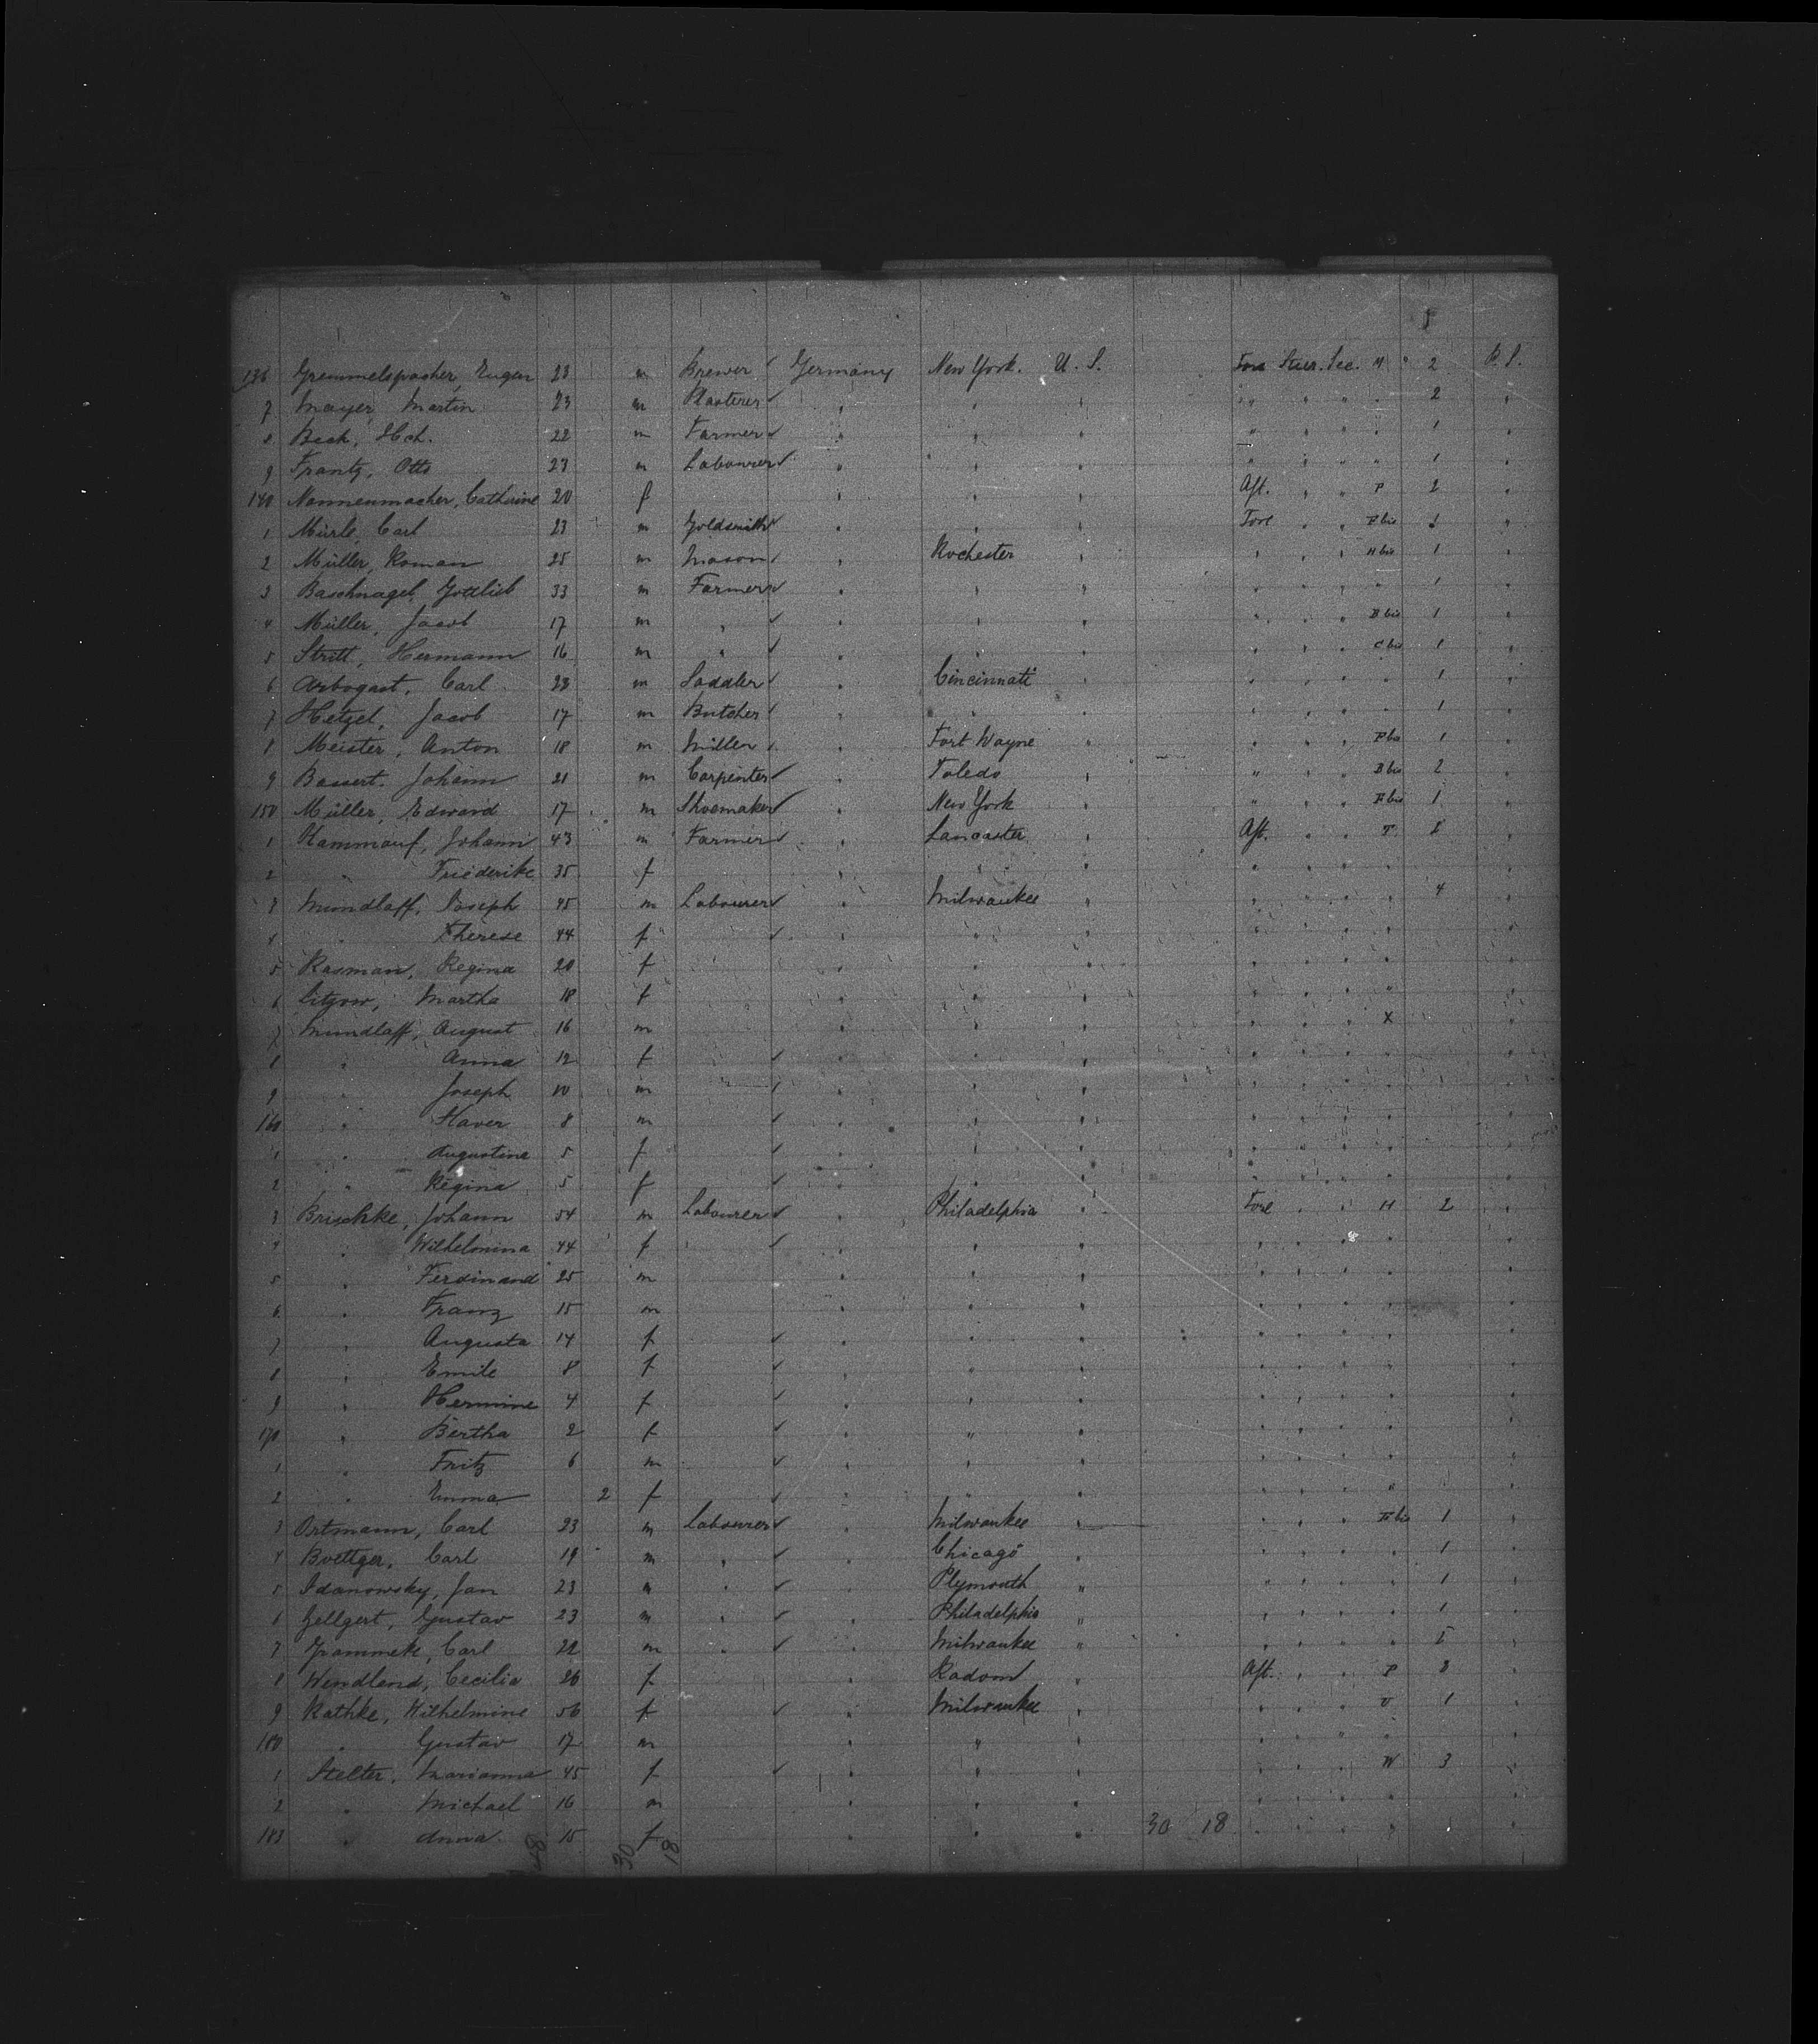 136 Gremmelspacher, Eugen 23 m Brewer Germany New York. U. S. Fore Steer. Sec. H " 2 P. S.
7 Mayer, Martin 23 m Plasterer 2
8 Beck, Hch. 22 m Farmer 1
9 Frantz, Otto 23 m Labourer 1
140 Nonnenmacher, Catharine 20 f Aft. P 2
1 Mürle, Carl 23 m Goldsmith Fore F bis 1
2 Müller, Roman 25 m Mason Rochester H bis 1
3 Baschnagel, Gottlieb 33 m Farmer " 1
4 Müller, Jacob 17 m " B bis 1
5 Stritt, Hermann 16 m " C bis 1
6 Arbogast, Carl 23 m Saddler Cincinnati 1
7 Hetzel, Jacob 17 m Butcher " 1
8 Meister, Anton 18 m Miller Fort Wayne F bis 1
9 Bassert, Johann 21 m Carpenter Toledo B bis 2
150 Müller, Edward 17 m Shoemaker New York F bis 1
1 Hammauf, Johann 43 m Farmer Lancaster Aft. T
2 " Friederike 35 f
3 Mundlaff, Joseph 45 m Labourer Milwaukee 4
4 " Therese 44 f
5 Rasman, Regina 20 f
6 Martha 18 f
7 Mundlaff, August 16 m X
8 " Anna 12 f
9 " Joseph 10 m
160 " Xaver 8 m
1 " Augustine 5 f
2 " Regina 5 f
3 Brischke, Johann 54 m Labourer Philadelphia Fore H 2
4 " Wilhelmina 44 f
5 " Ferdinand 25 m
6 " Franz 15 m
7 " Augusta 14 f
8 " Emile 8 f
9 " Hermine 4 f
170 " Bertha 2 f
1 " Fritz 6 m
2 " Emma 2 f
3 Ortmann, Carl 23 m Labourer Milwaukee F bis 1
4 Boettger, Carl 19 m " Chicago 1
5 Idanowsky, Jan 23 m " Plymouth " 1
6 Gellgert, Gustav 23 m " Philadelphia " 1
7 Grammek, Carl 22 m " Milwaukee "
8 Wendland, Cecilia 26 f Radom Aft. P
9 Rathke, Wilhelmine 56 f Milwaukee U 1
180 " Gustav 17 m "
1 Stelter, Marianna 45 f W 3
2 " Michael 16 m
183 " Anna 15 f 30 18
48 30 18